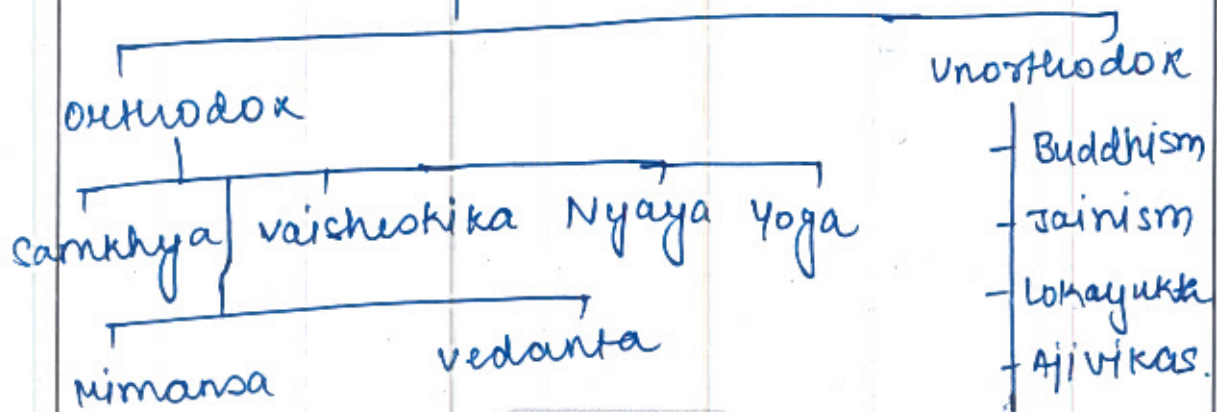 Orthodox
Unorthodox
Samkhya Vaisheshika Nyaya Yoga
Mimansa Vedanta
Buddhism
Jainism
Lokayukta
Ajivikas.